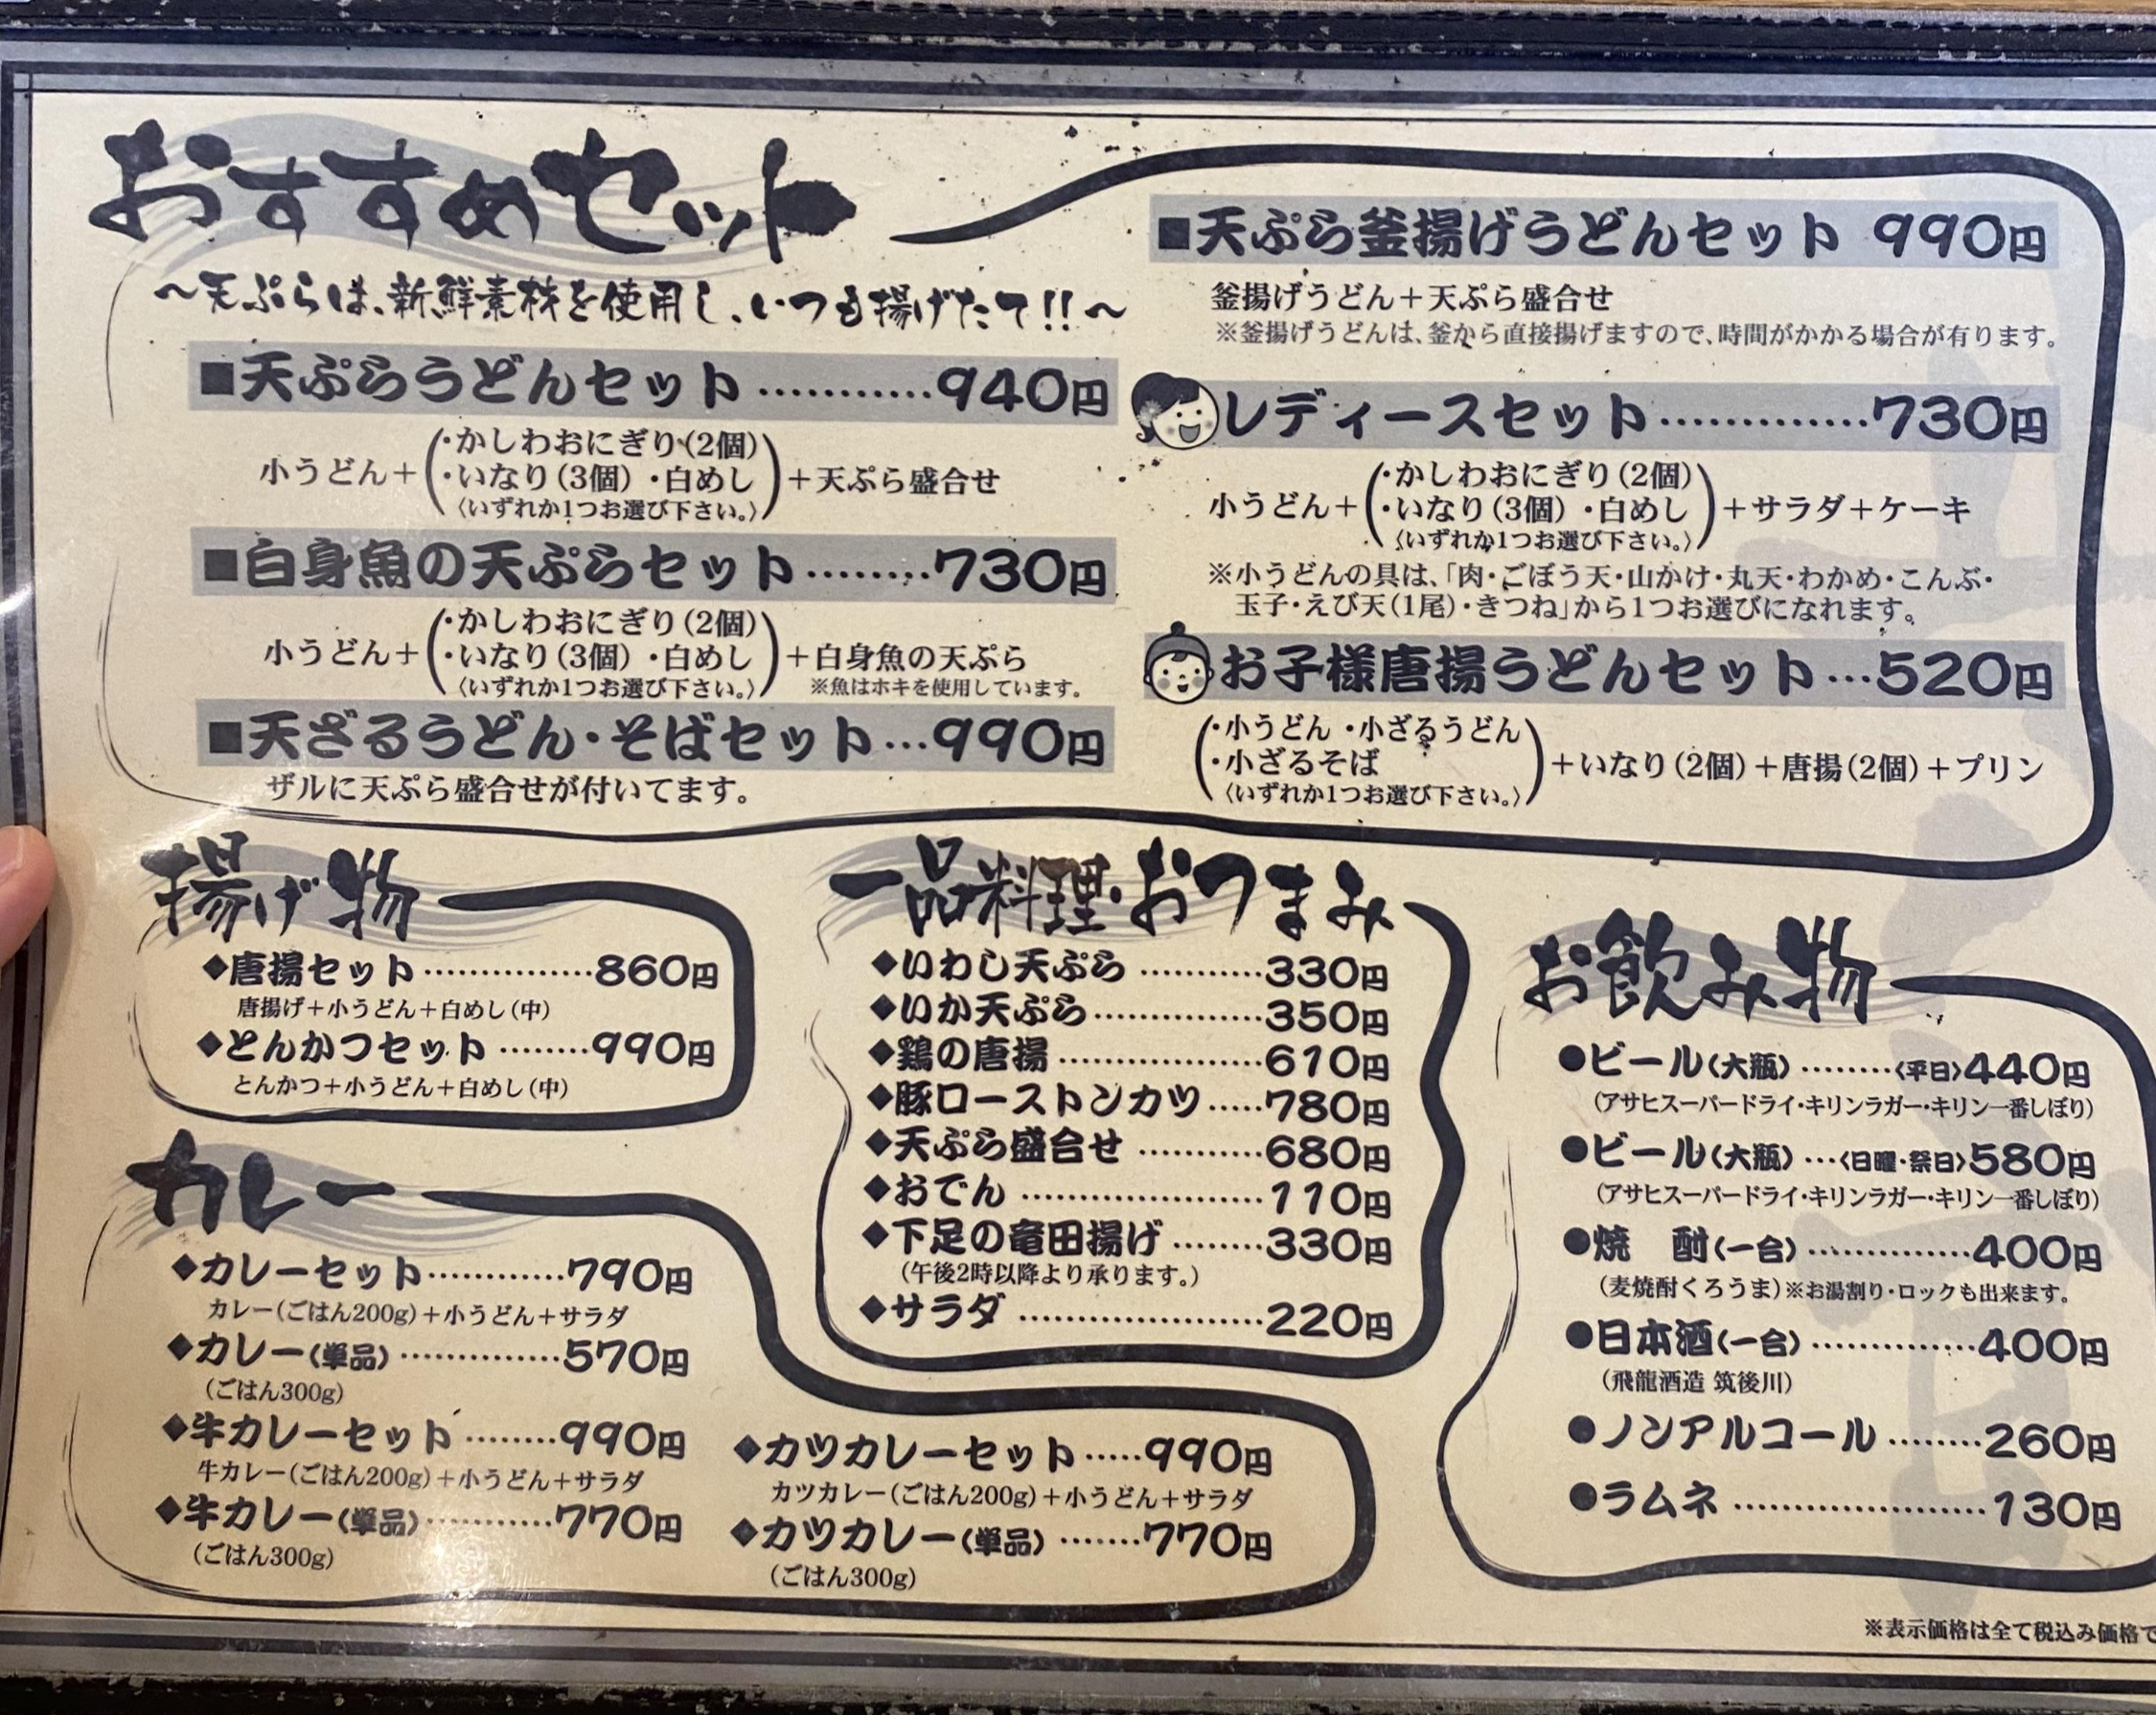 おすすめセット
～天ぷらは、新鮮素材を使用し、いつも揚げたて!!～
■天ぷらうどんセット…………940円
小うどん＋(・かしわおにぎり(2個)
・いなり(3個) ・白めし
〈いずれか1つお選び下さい。〉)＋天ぷら盛合せ
■白身魚の天ぷらセット………730円
小うどん＋(・かしわおにぎり(2個)
・いなり(3個) ・白めし
〈いずれか1つお選び下さい。〉)＋白身魚の天ぷら
※魚はホキを使用しています。
■天ざるうどん・そばセット…990円
ザルに天ぷら盛合せが付いてます。
■天ぷら釜揚げうどんセット 990円
釜揚げうどん＋天ぷら盛合せ
※釜揚げうどんは、釜から直接揚げますので、時間がかかる場合が有ります。
レディースセット……………730円
小うどん＋(・かしわおにぎり(2個)
・いなり(3個) ・白めし
〈いずれか1つお選び下さい。〉)＋サラダ＋ケーキ
※小うどんの具は、「肉・ごぼう天・山かけ・丸天・わかめ・こんぶ・
玉子・えび天(1尾)・きつね」から1つお選びになれます。
お子様唐揚うどんセット…520円
(・小うどん ・小ざるうどん
・小ざるそば
〈いずれか1つお選び下さい。〉)＋いなり(2個)＋唐揚(2個)＋プリン
揚げ物
◆唐揚セット……………860円
唐揚げ＋小うどん＋白めし(中)
◆とんかつセット………990円
とんかつ＋小うどん＋白めし(中)
カレー
◆カレーセット…………790円
カレー(ごはん200g)＋小うどん＋サラダ
◆カレー(単品)……………570円
(ごはん300g)
◆牛カレーセット………990円
牛カレー(ごはん200g)＋小うどん＋サラダ
◆牛カレー(単品)…………770円
(ごはん300g)
◆カツカレーセット……990円
カツカレー(ごはん200g)＋小うどん＋サラダ
◆カツカレー(単品)………770円
(ごはん300g)
一品料理・おつまみ
◆いわし天ぷら…………330円
◆いか天ぷら……………350円
◆鶏の唐揚………………610円
◆豚ローストンカツ……780円
◆天ぷら盛合せ…………680円
◆おでん…………………110円
◆下足の竜田揚げ………330円
(午後2時以降より承ります。)
◆サラダ…………………220円
お飲み物
●ビール(大瓶)………〈平日〉440円
(アサヒスーパードライ・キリンラガー・キリン一番しぼり)
●ビール(大瓶)…〈日曜・祭日〉580円
(アサヒスーパードライ・キリンラガー・キリン一番しぼり)
●焼　酎(一合)……………400円
(麦焼酎くろうま)※お湯割り・ロックも出来ます。
●日本酒(一合)……………400円
(飛龍酒造 筑後川)
●ノンアルコール………260円
●ラムネ…………………130円
※表示価格は全て税込み価格で